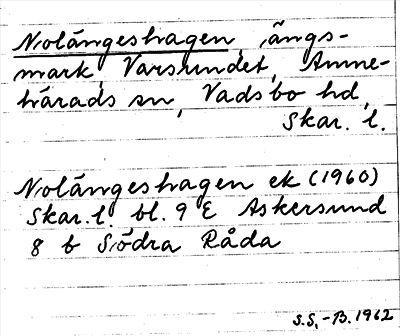 Nolängeshagen, ängs-
mark, Varsundet, Amne-
härads sn, Vadsbo hd,
Skar. l.
Nolängeshagen ek (1960)
Skar. l. bl. 9 E Askersund
8 b Södra Råda
S.S.-B. 1962